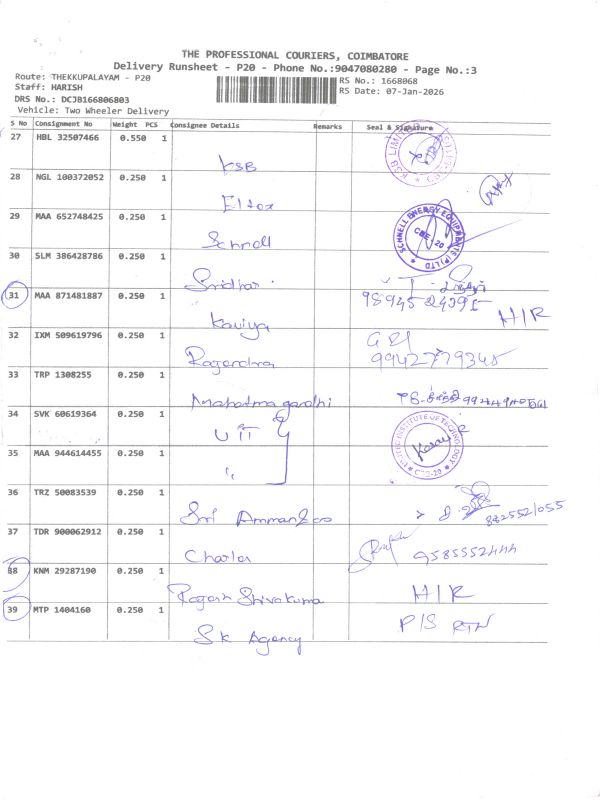 THE PROFESSIONAL COURIERS, COIMBATORE
Delivery Runsheet - P20 - Phone No.:9047080280 - Page No.:3
Route: THEKKUPALAYAM - P20
Staff: HARISH
DRS No.: DCJB166806803
Vehicle: Two Wheeler Delivery
RS No.: 1668068
RS Date: 07-Jan-2026
S No Consignment No Weight PCS Consignee Details Remarks Seal & Signature
27 HBL 32507466 0.550 1 KSB
28 NGL 100372052 0.250 1 Eltox
29 MAA 652748425 0.250 1 Schnell
SCHNELL ENERGY EQUIPMENTS (P) LTD
CBE-20
30 SLM 386428786 0.250 1 Sridhar
31 MAA 871481887 0.250 1 Kaviya H/R
32 IXM 509619796 0.250 1 Rajendra
9942779345
33 TRP 1308255 0.250 1 Mahatma gandhi
34 SVK 60619364 0.250 1 UIT
INSTITUTE OF TECHNOLOGY
35 MAA 944614455 0.250 1 "
36 TRZ 50083539 0.250 1 Sri Amman
37 TDR 900062912 0.250 1 9585552444
38 KNM 29287190 0.250 1 H/R
39 MTP 1404160 0.250 1 SK Agency P/S RTN